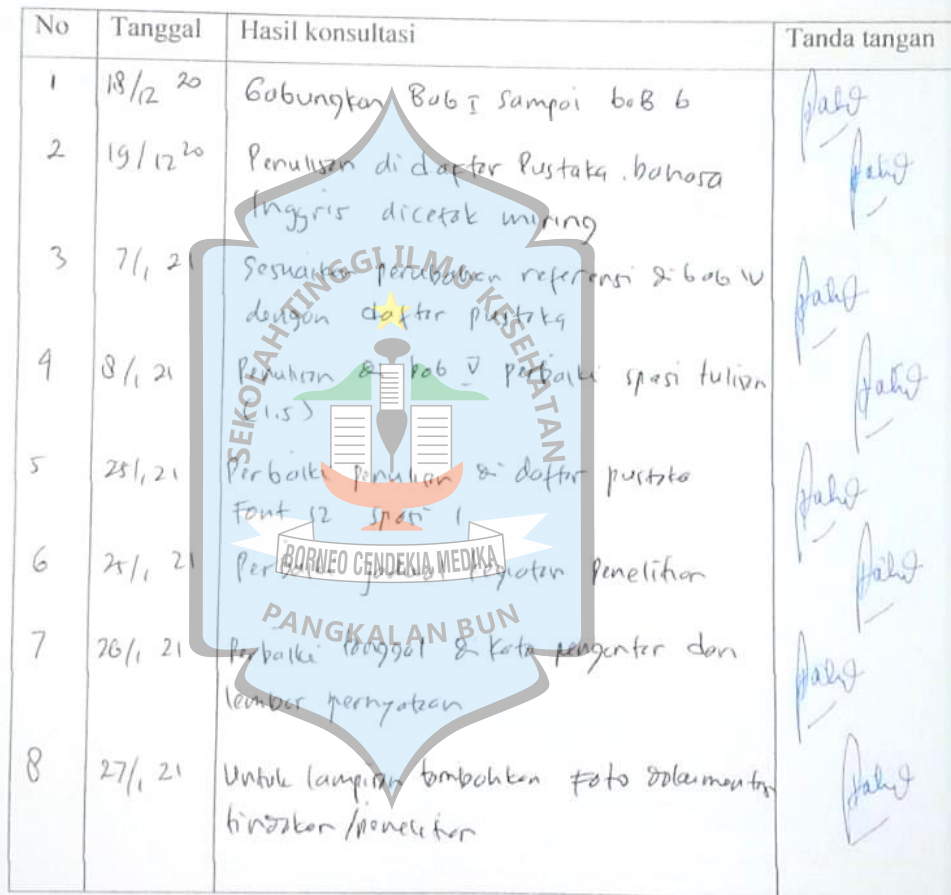 No Tanggal Hasil konsultasi Tanda tangan
1 18/12 20 Gabungkan Bab I sampai baB 6
2 19/12 20 Penulisan di daftar Pustaka bahasa
Inggris dicetak miring
3 7/1 21 Sesuaikan referensi di bab IV
dengan daftar pustaka
4 8/1 21 Penulisan di bab V perbaiki spasi tulisan
(1.5)
5 25/1 21 Perbaiki penulisan di daftar pustaka
Font 12 spasi 1
6 25/1 21 kegiatan Penelitian
7 26/1 21 Perbaiki tanggal di kata pengantar dan
lembar pernyataan
8 27/1 21 Untuk lampiran tambahkan Foto dokumentasi
tindakan/penelitian
SEKOLAH TINGGI ILMU KESEHATAN
BORNEO CENDEKIA MEDIKA
PANGKALAN BUN